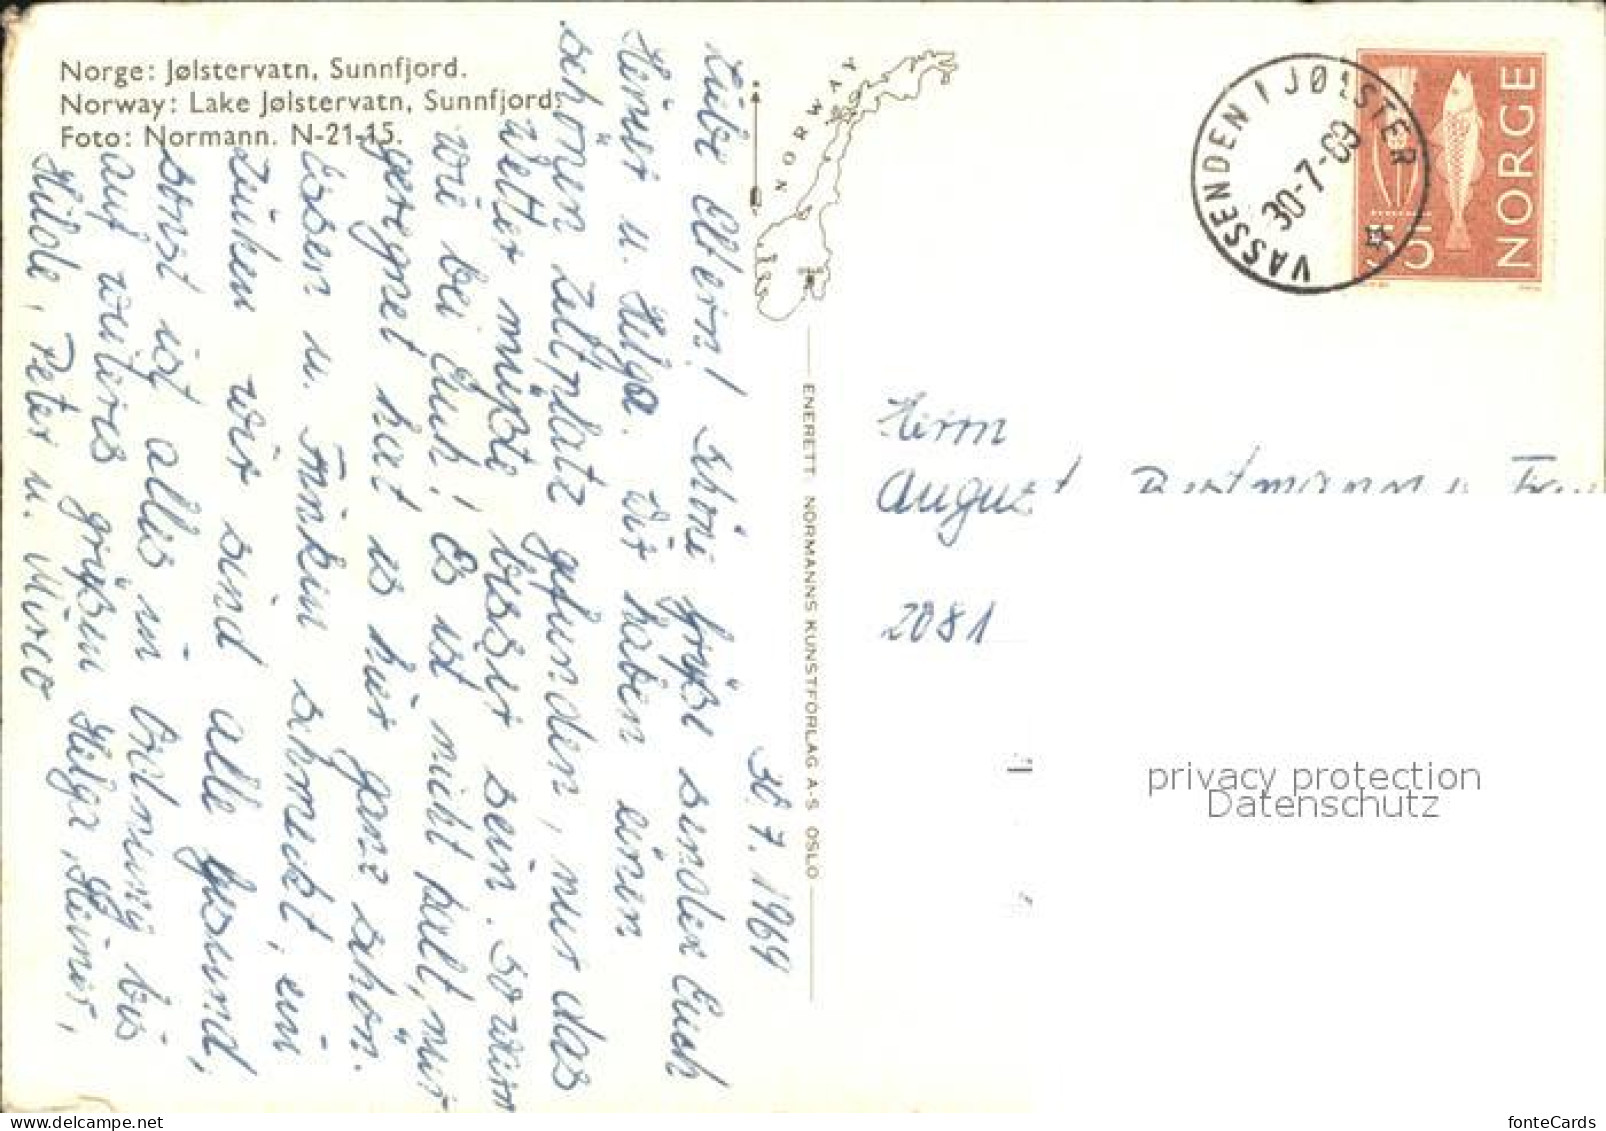 Norge: Jølstervatn, Sunnfjord.
Norway: Lake Jølstervatn, Sunnfjord.
Foto: Normann. N-21-15.
NORWAY
30.7.1969
Liebe Eltern! Schöne Grüße sendet Euch
Heiner u. Helga. Wir haben einen
schönen Zeltplatz gefunden, nur das
Wetter müßte besser sein. So warm
wie bei Euch! Es ist nicht kalt, nur
geregnet hat es hier ganz schön.
Essen u. Trinken schmeckt, ein
Zeichen wir sind alle gesund,
sonst ist alles in Ordnung bis
auf weiteres grüßen Helga, Heiner,
Hilde, Peter u. Mirco
ENERETT: NORMANNS KUNSTFORLAG A-S OSLO
VASSENDEN I JØLSTER
30-7-69
55
NORGE
Herrn
August
2081
privacy protection
Datenschutz
fonteCards